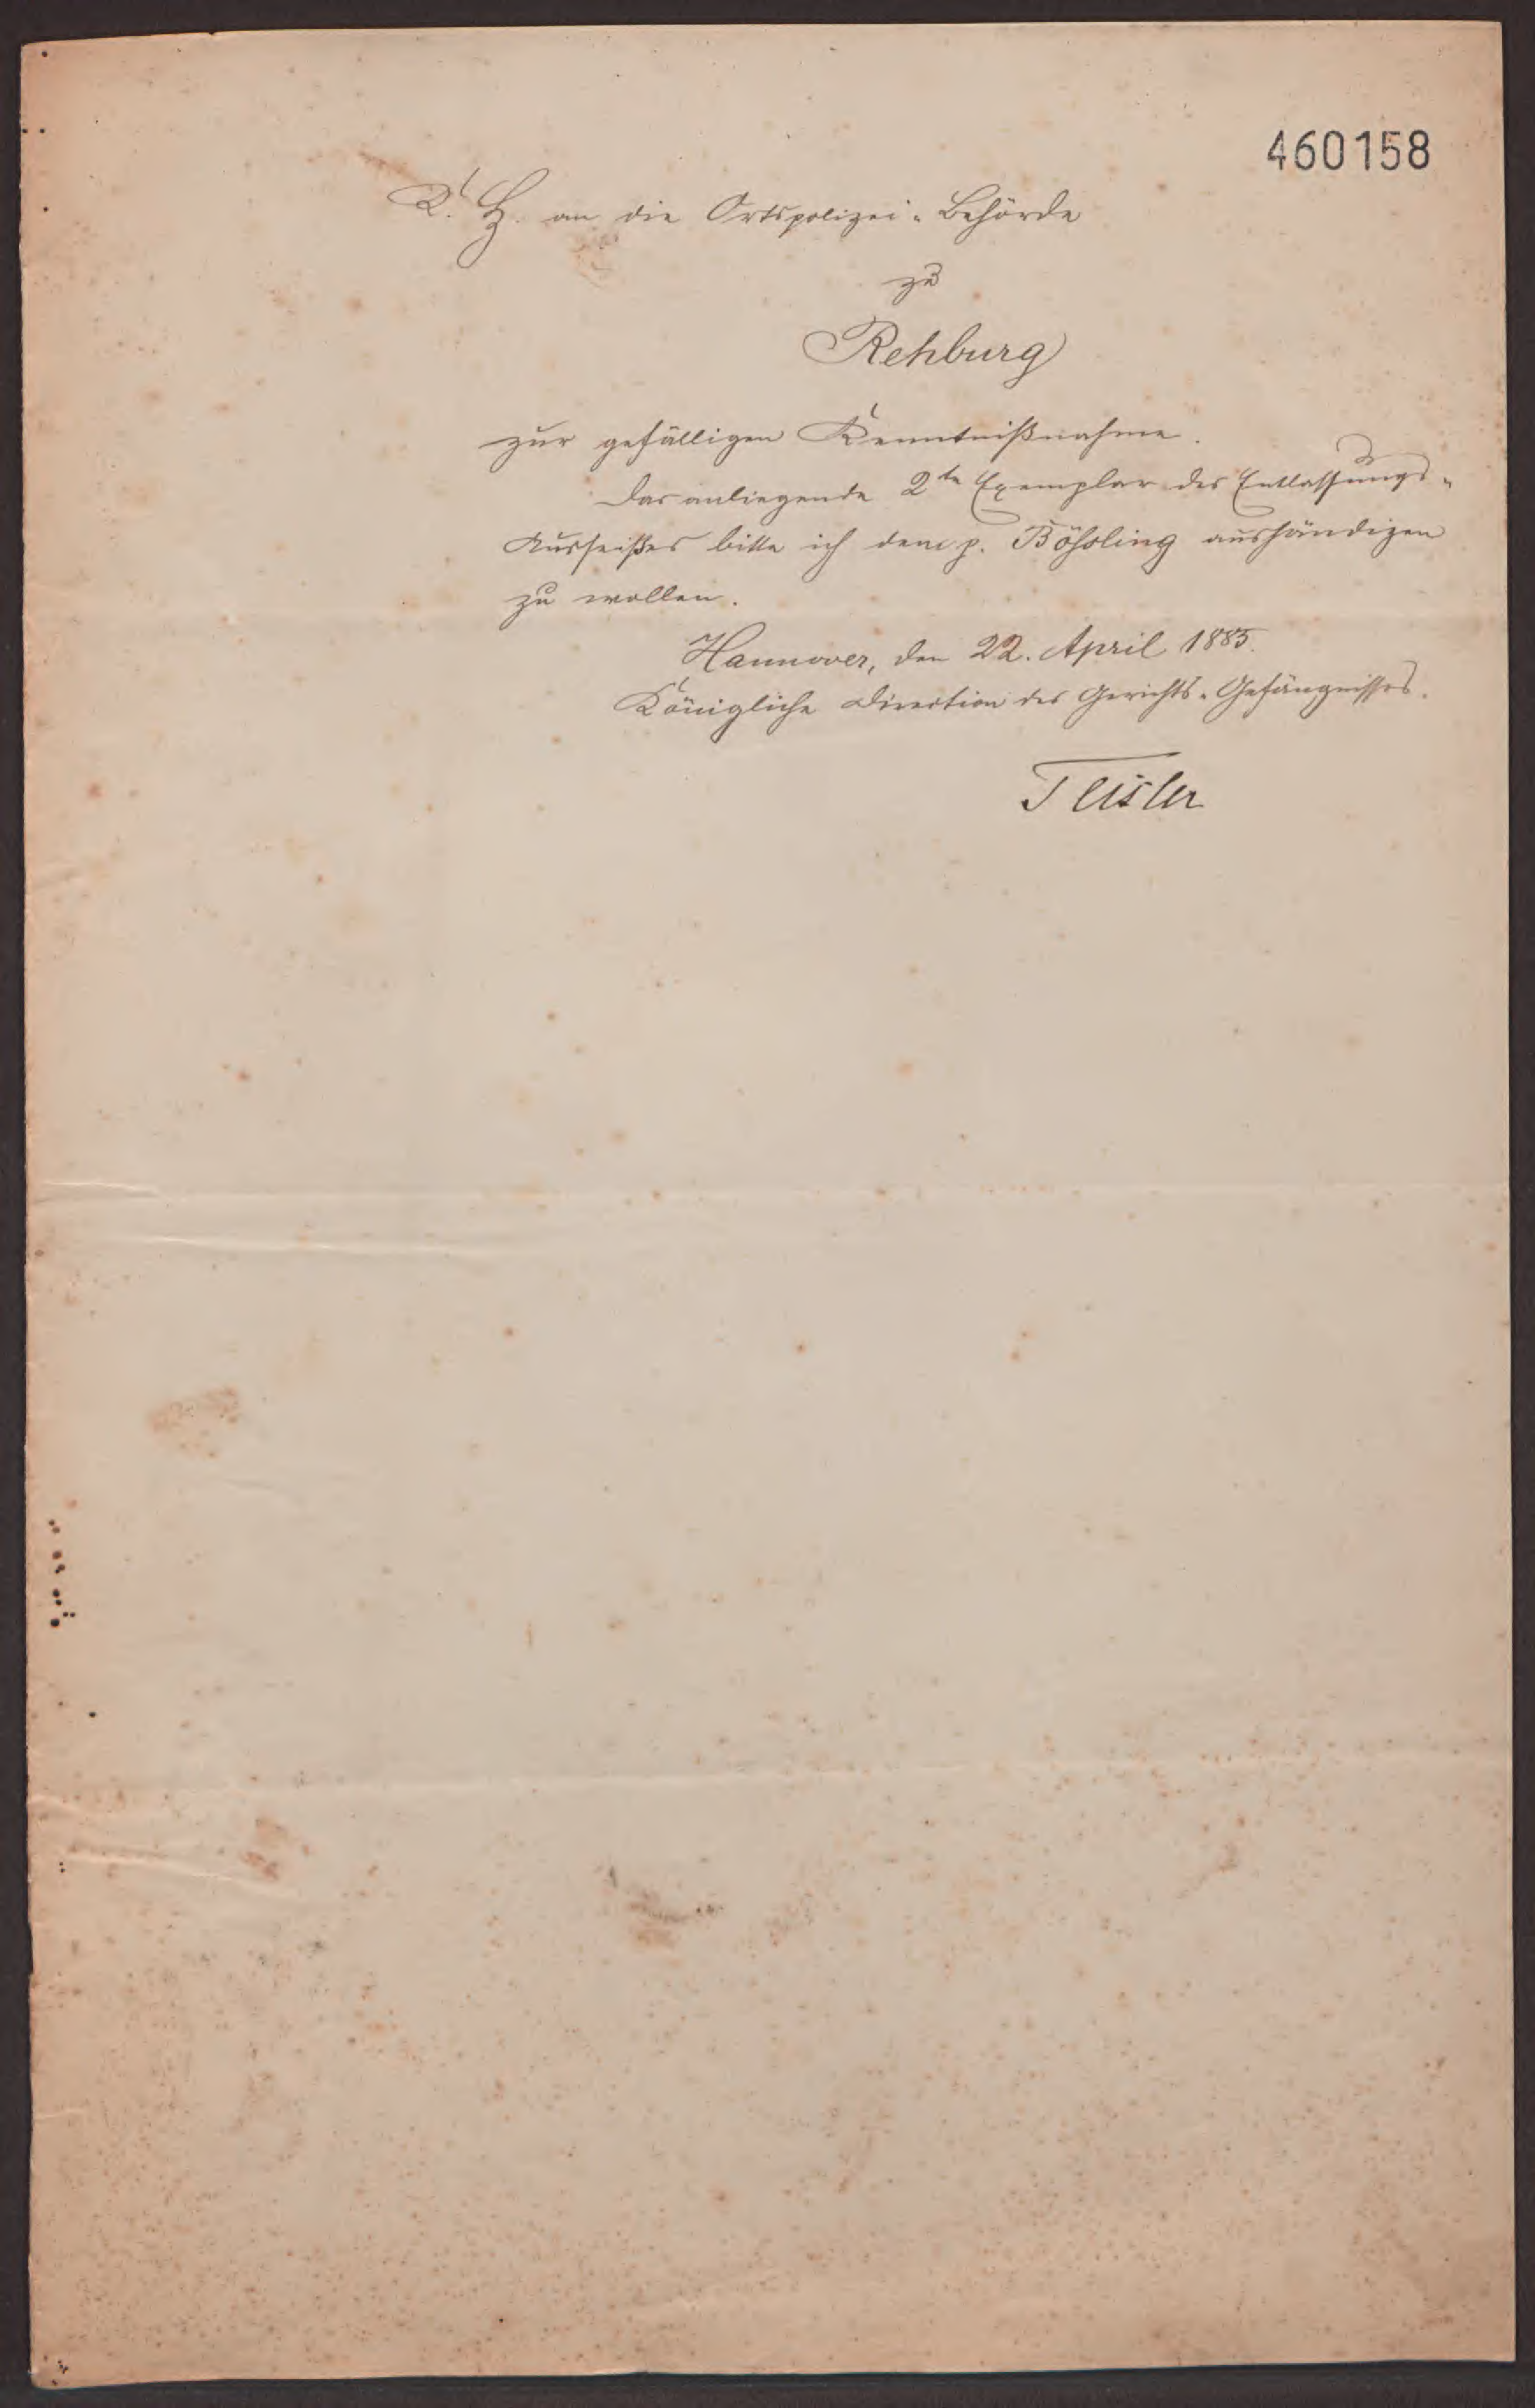 460158
K. H. an die Ortspolizei-Behörde
zu
Rehburg
zur gefälligen Kenntnißnahme.
Das anliegende 2te Exemplar des Entlassungs-
bitte ich dem p. aushändigen
zu wollen.
Hannover, den 22. April 1885.
Königliche Direction des Gerichts-Gefängnisses.